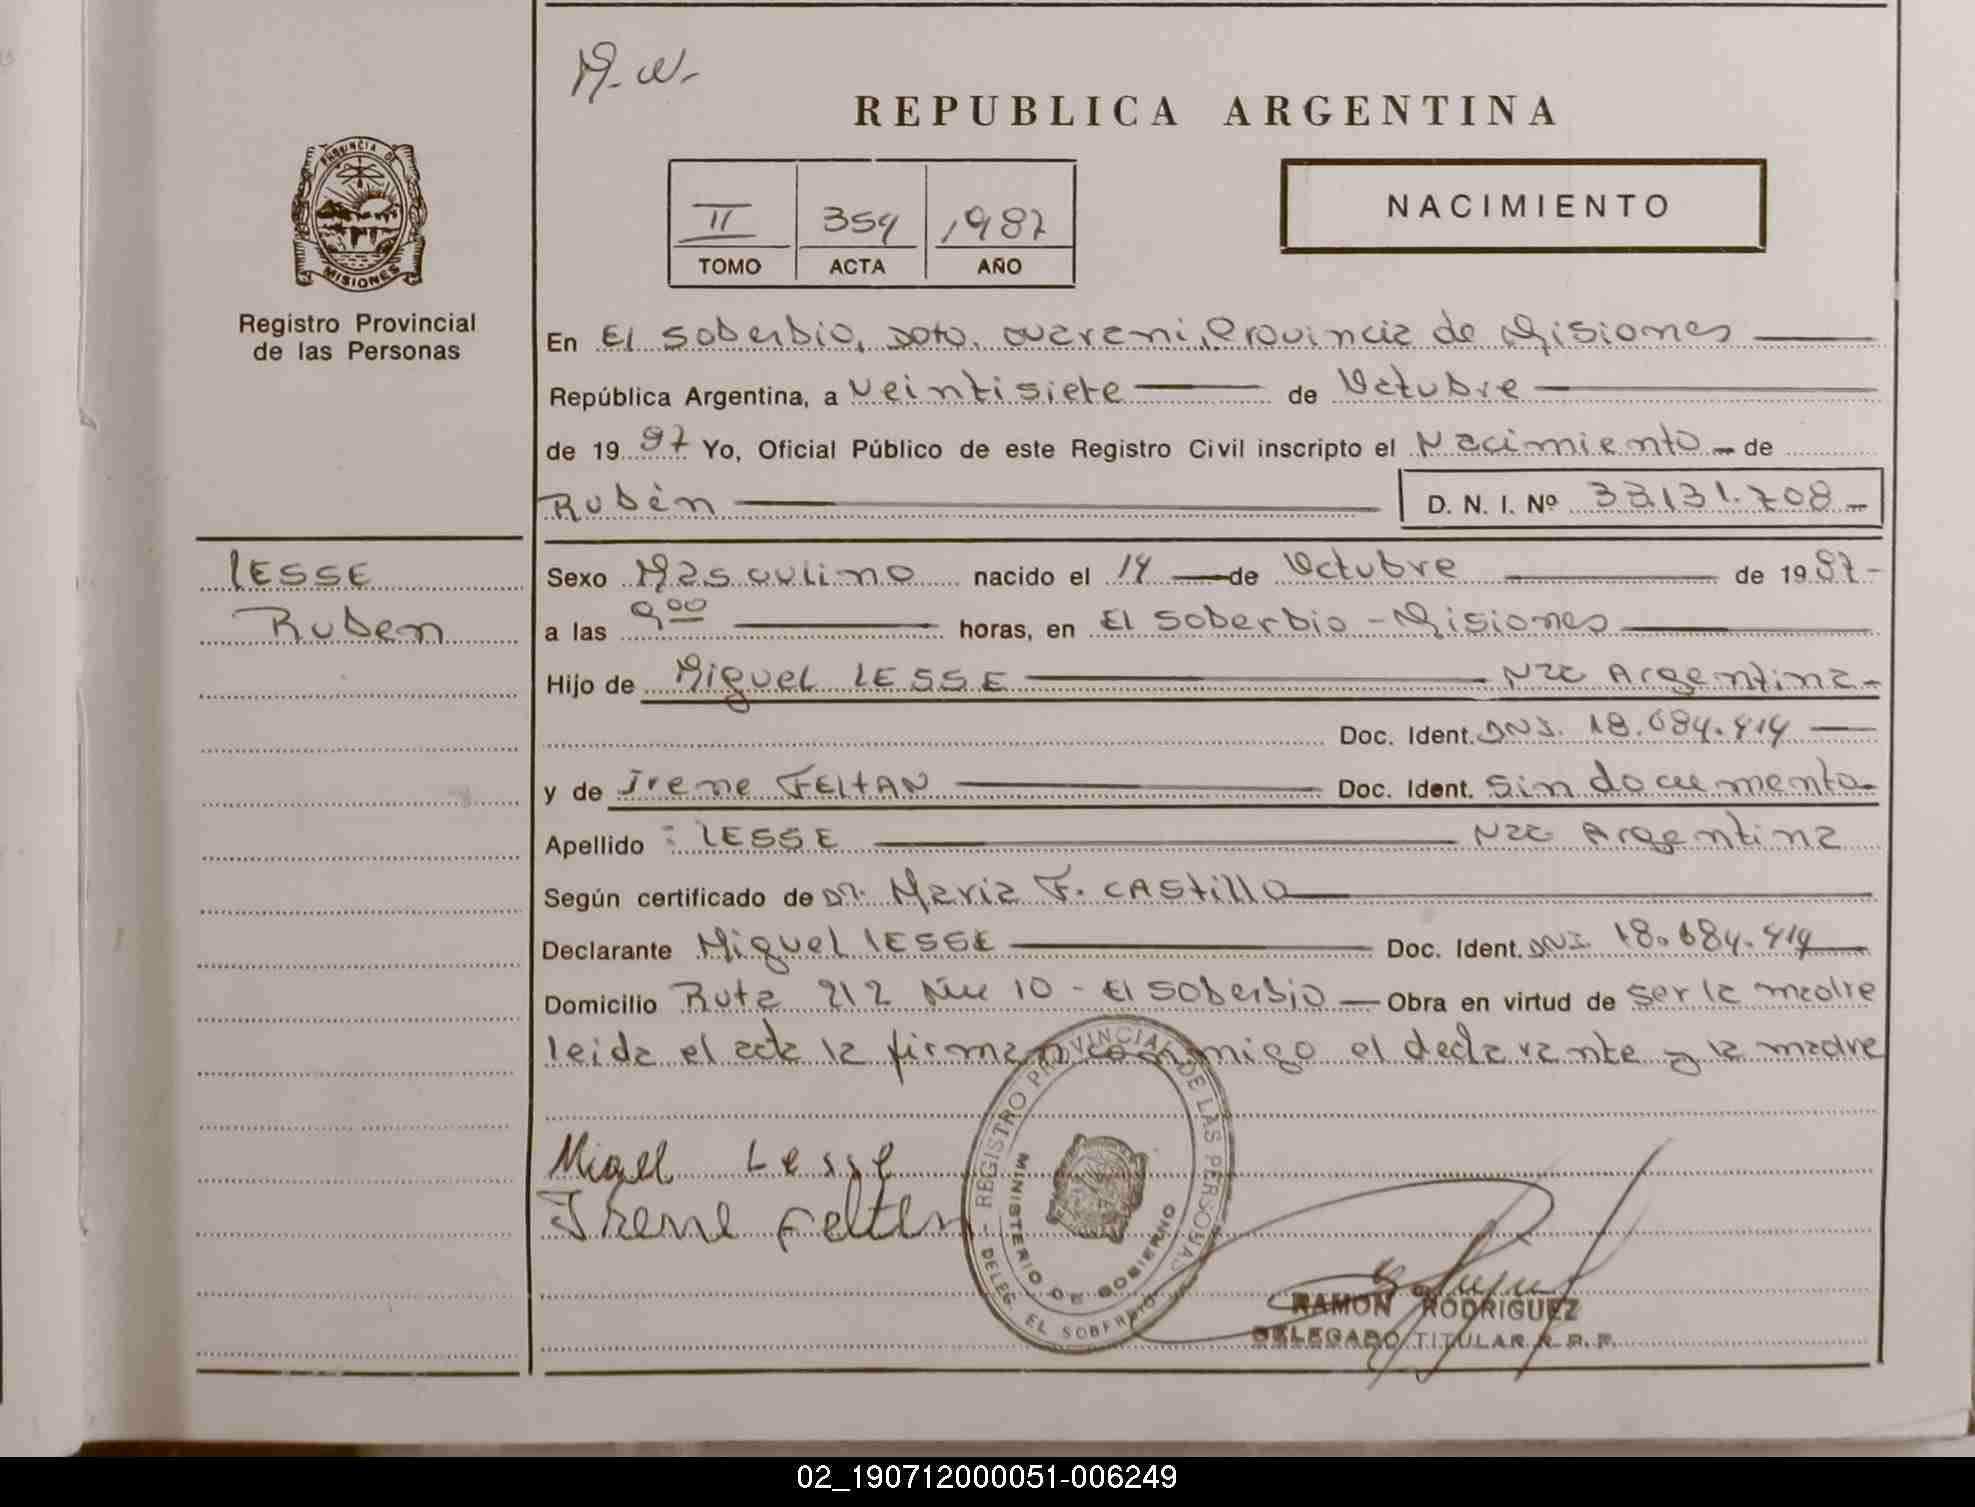 M. N.
REPUBLICA ARGENTINA
PROVINCIA DE
MISIONES
Registro Provincial
de las Personas
II 354 1987
TOMO ACTA AÑO
NACIMIENTO
En El Soberbio, Dpto. Guarani, Provincia de Misiones
República Argentina, a veintisiete de Octubre
de 19 87 Yo, Oficial Público de este Registro Civil inscripto el Nacimiento de
Rubén D. N. I. Nº 33.131.708
LESSE
Ruben
Sexo Masculino nacido el 14 de Octubre de 19 87
a las 9.00 horas, en El Soberbio - Misiones
Hijo de Miguel LESSE Nac Argentina
Doc. Ident. DNI. 18.684.414
y de Irene FELTAN Doc. Ident. Sin documento
Apellido : LESSE Nac Argentina
Según certificado de Dr. Maria F. CAStillo
Declarante Miguel LESSE Doc. Ident. DNI. 18.684.414
Domicilio Ruta 212 10 - El Soberbio Obra en virtud de ser la madre
leida el acta la firman conmigo el declarante y la madre
Migell Lesse
Irene Felten
REGISTRO PROVINCIAL DE LAS PERSONAS
MINISTERIO DE GOBIERNO
DELEG. EL SOBERBIO
RAMON RODRIGUEZ
DELEGADO TITULAR R. P. P.
02_190712000051-006249